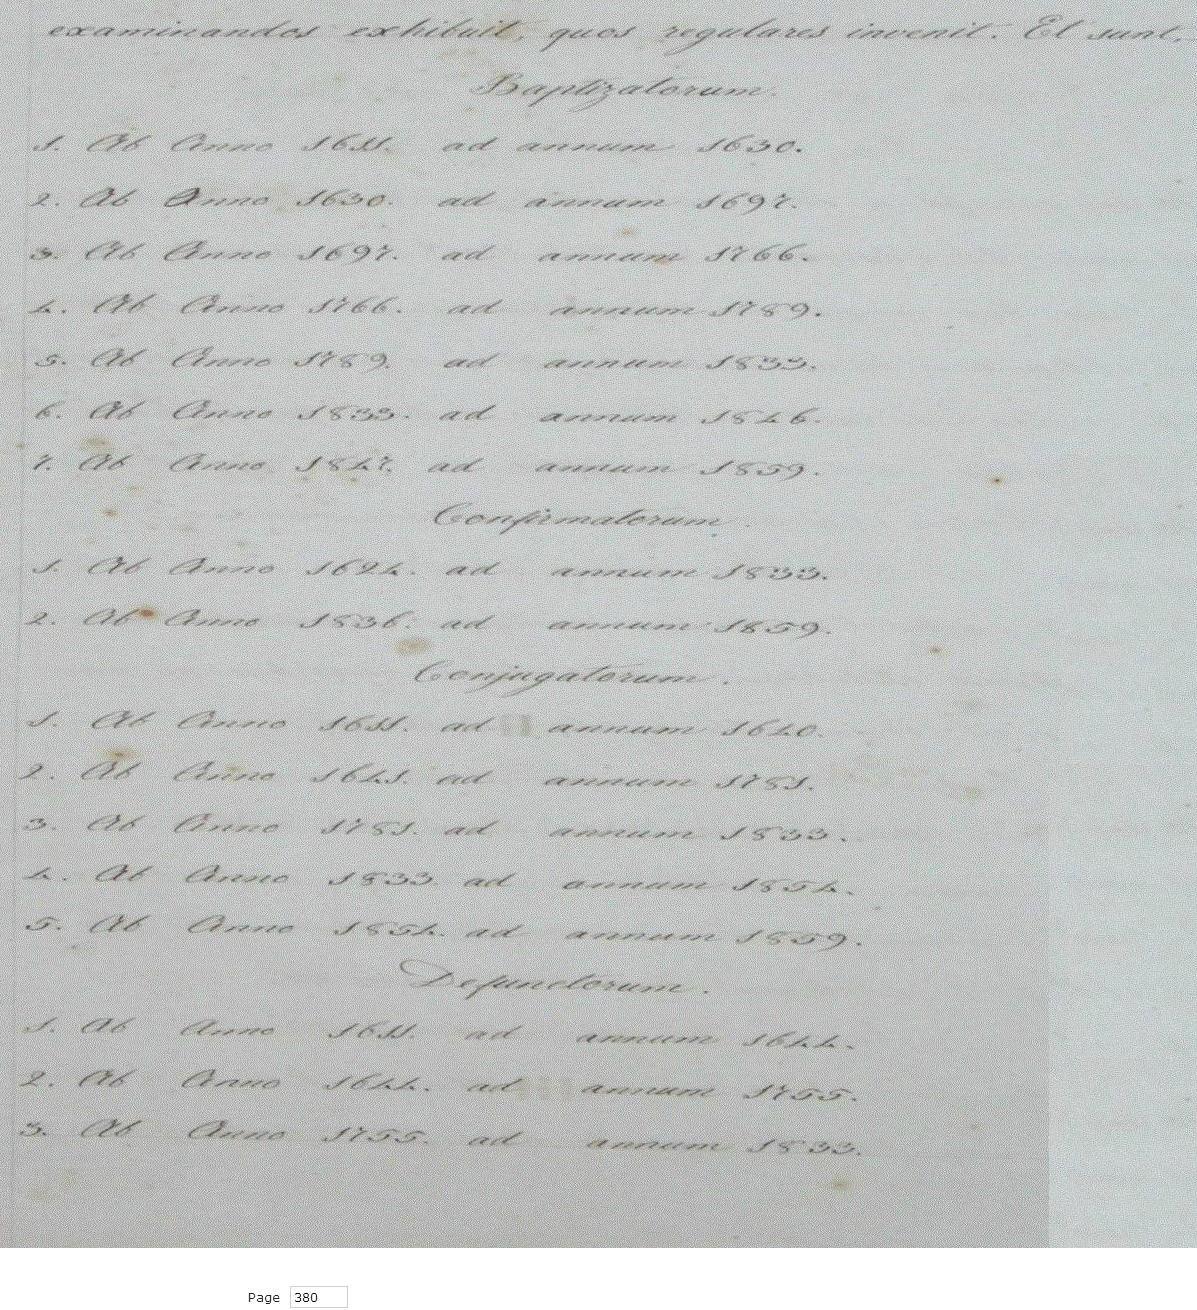 examinandos exhibuit, quos regulares invenit. Et sunt,
Baptizatorum.
1. Ab Anno 1611. ad annum 1630.
2. Ab Anno 1630. ad annum 1697.
3. Ab Anno 1697. ad annum 1766.
4. Ab Anno 1766. ad annum 1789.
5. Ab Anno 1789. ad annum 1833.
6. Ab Anno 1833. ad annum 1846.
7. Ab Anno 1847. ad annum 1859.
Confirmatorum.
1. Ab Anno 1624. ad annum 1833.
2. Ab Anno 1836. ad annum 1859.
Conjugatorum.
1. Ab Anno 1611. ad annum 1640.
2. Ab Anno 1641. ad annum 1781.
3. Ab Anno 1781. ad annum 1833.
4. Ab Anno 1833. ad annum 1854.
5. Ab Anno 1854. ad annum 1859.
Defunctorum.
1. Ab Anno 1611. ad annum 1644.
2. Ab Anno 1644. ad annum 1755.
3. Ab Anno 1755. ad annum 1833.
Page 380